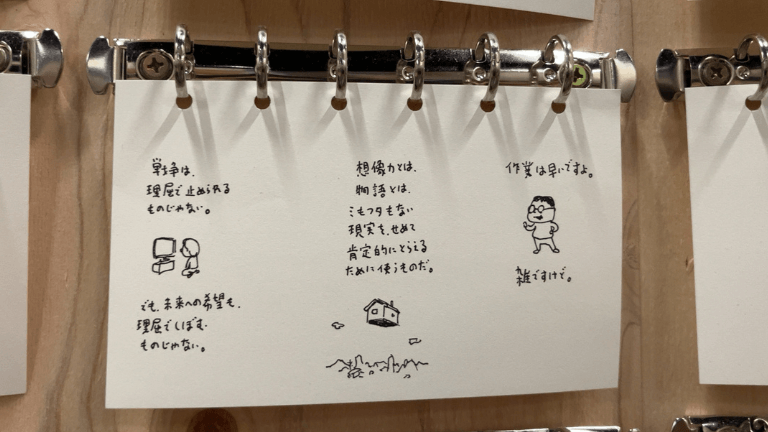 戦争は、
理屈で止められる
ものじゃない。
でも、未来への希望も、
理屈でしぼむ
ものじゃない。
想像力とは、
物語とは、
ミもフタもない
現実を、せめて
肯定的にとらえる
ために使うものだ。
作業は早いですよ。
雑ですけど。